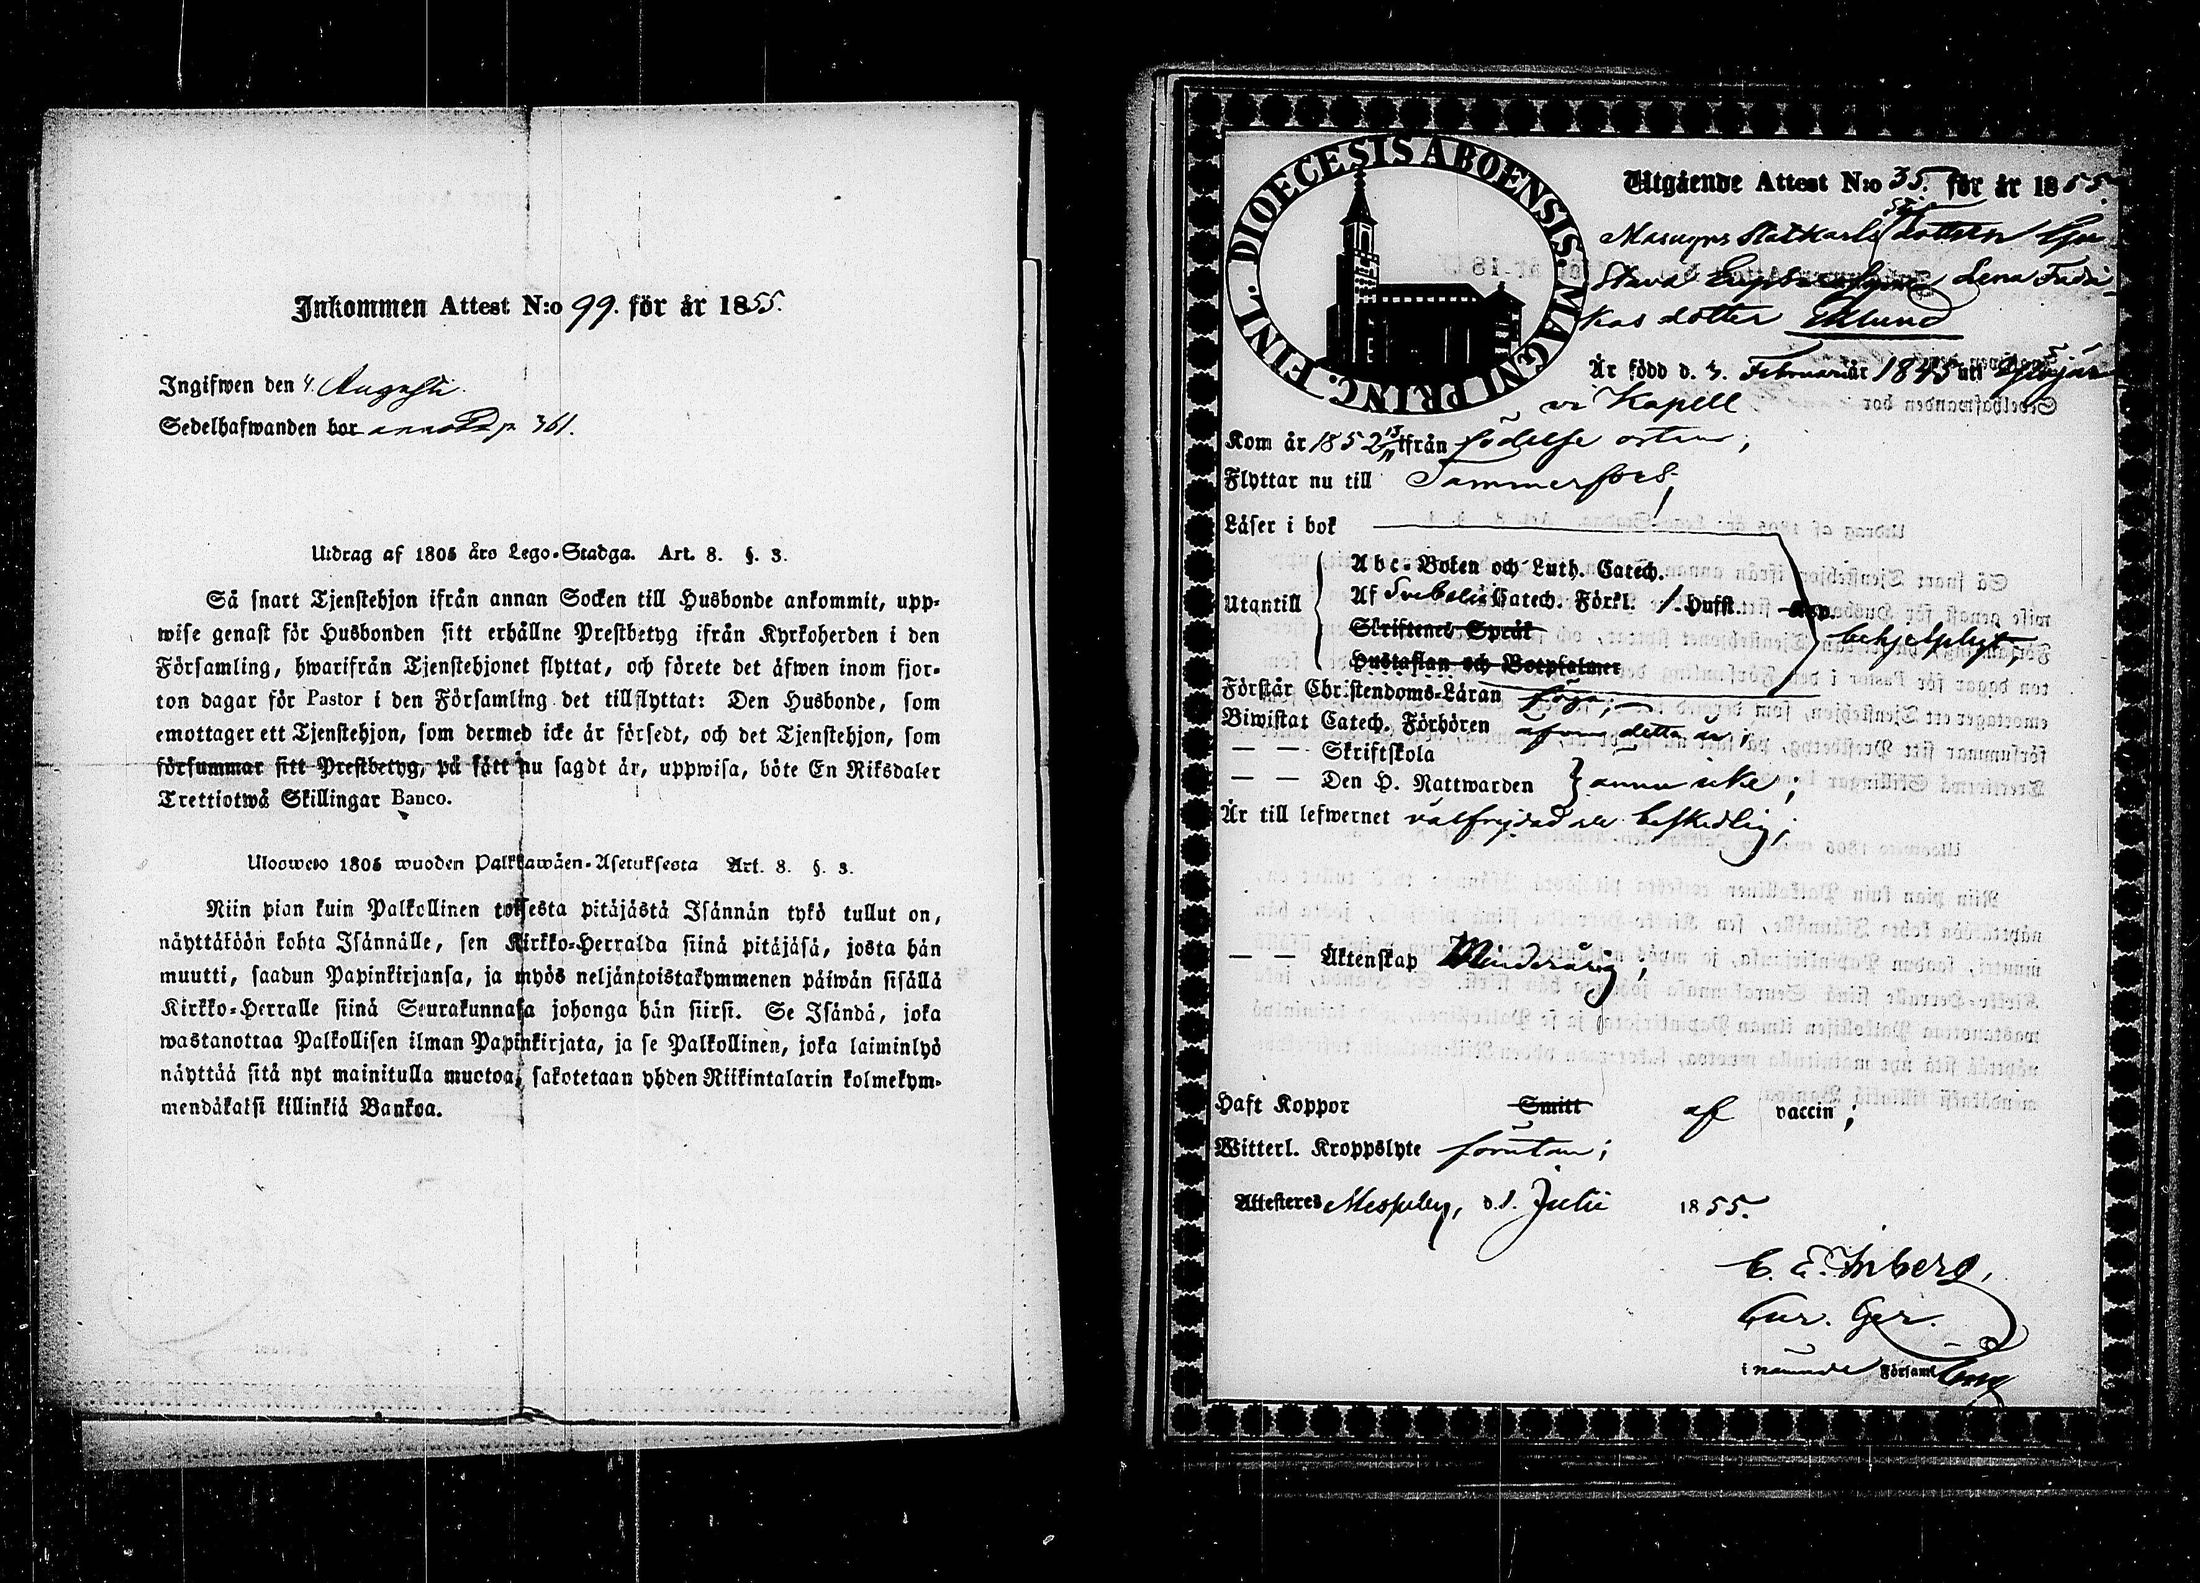 Inkommen Attest N:o 99. för år 1855.
Ingifwen den 4. Augusti.
Sedelhafwanden bor annot. p. 361.
Utdrag af 1805 års Lego-Stadga. Art. 8. §. 3.
Så snart Tjenstehjon ifrån annan Socken till Husbonde ankommit, upp-
wise genast för Husbonden sitt erhållne Prestbetyg ifrån Kyrkoherden i den
Församling, hwarifrån Tjenstehjonet flyttat, och förete det äfwen inom fjor-
ton dagar för Pastor i den Församling det tillflyttat: Den Husbonde, som
emottager ett Tjenstehjon, som dermed icke är försedt, och det Tjenstehjon, som
försummar sitt Prestbetyg, på sätt nu sagdt är, uppwisa, böte En Riksdaler
Trettiotwå Skillingar Banco.
Ulosweto 1805 wuoden Palkkawäen-Asetuksesta Art. 8. §. 3.
Niin pian kuin Palkollinen toisesta pitäjästä Isännän tykö tullut on,
näyttäköön kohta Isännälle, sen Kirkko-Herralda siinä pitäjäsä, josta hän
muutti, saadun Papinkirjansa, ja myös neljäntoistakymmenen päiwän sisällä
Kirkko-Herralle siinä Seurakunnasa johonga hän siirsi. Se Isändä, joka
wastanottaa Palkollisen ilman Papinkirjata, ja se Palkollinen, joka laiminlyö
näyttää sitä nyt mainitulla muotoa, sakotetaan yhden Riikintalarin kolmekym-
mendäkaksi killinkiä Bankoa.
DIOECESIS ABOENSIS. MAGNI PRINC. FINL.
Utgående Attest N:o 35. för år 1855.
Masugns Statkarls dottren
Lena Fredri-
kas dotter
Är född d. 3. Februari år 1845 uti
Kapell
Kom år 1852 13/11 ifrån födelse orten;
Flyttar nu till Tammerfors;
Läser i bok
Utantill
Abc-Boken och Luth. Catech.
Af Svebelii Catech. Förkl. 1. Hufst. Kop.
Skriftenes Språk
behjelpligt;
Hustaflan och Botpsalmer
Förstår Christendoms-Läran föga;
Biwistat Catech. Förhören äfven detta år;
— — Skriftskola
— — Den H. Nattwarden } ännu icke;
Är till lefwernet välfrejdad och beskedlig;
— — Äktenskap Minderårig;
Haft Koppor Smitt af vaccin;
Witterl. Kroppslyte förutan;
Attesteras Messuby, d. 1. Julii 1855.
C. E. Inberg,
Cur. Ger.
i nämnde Församl.